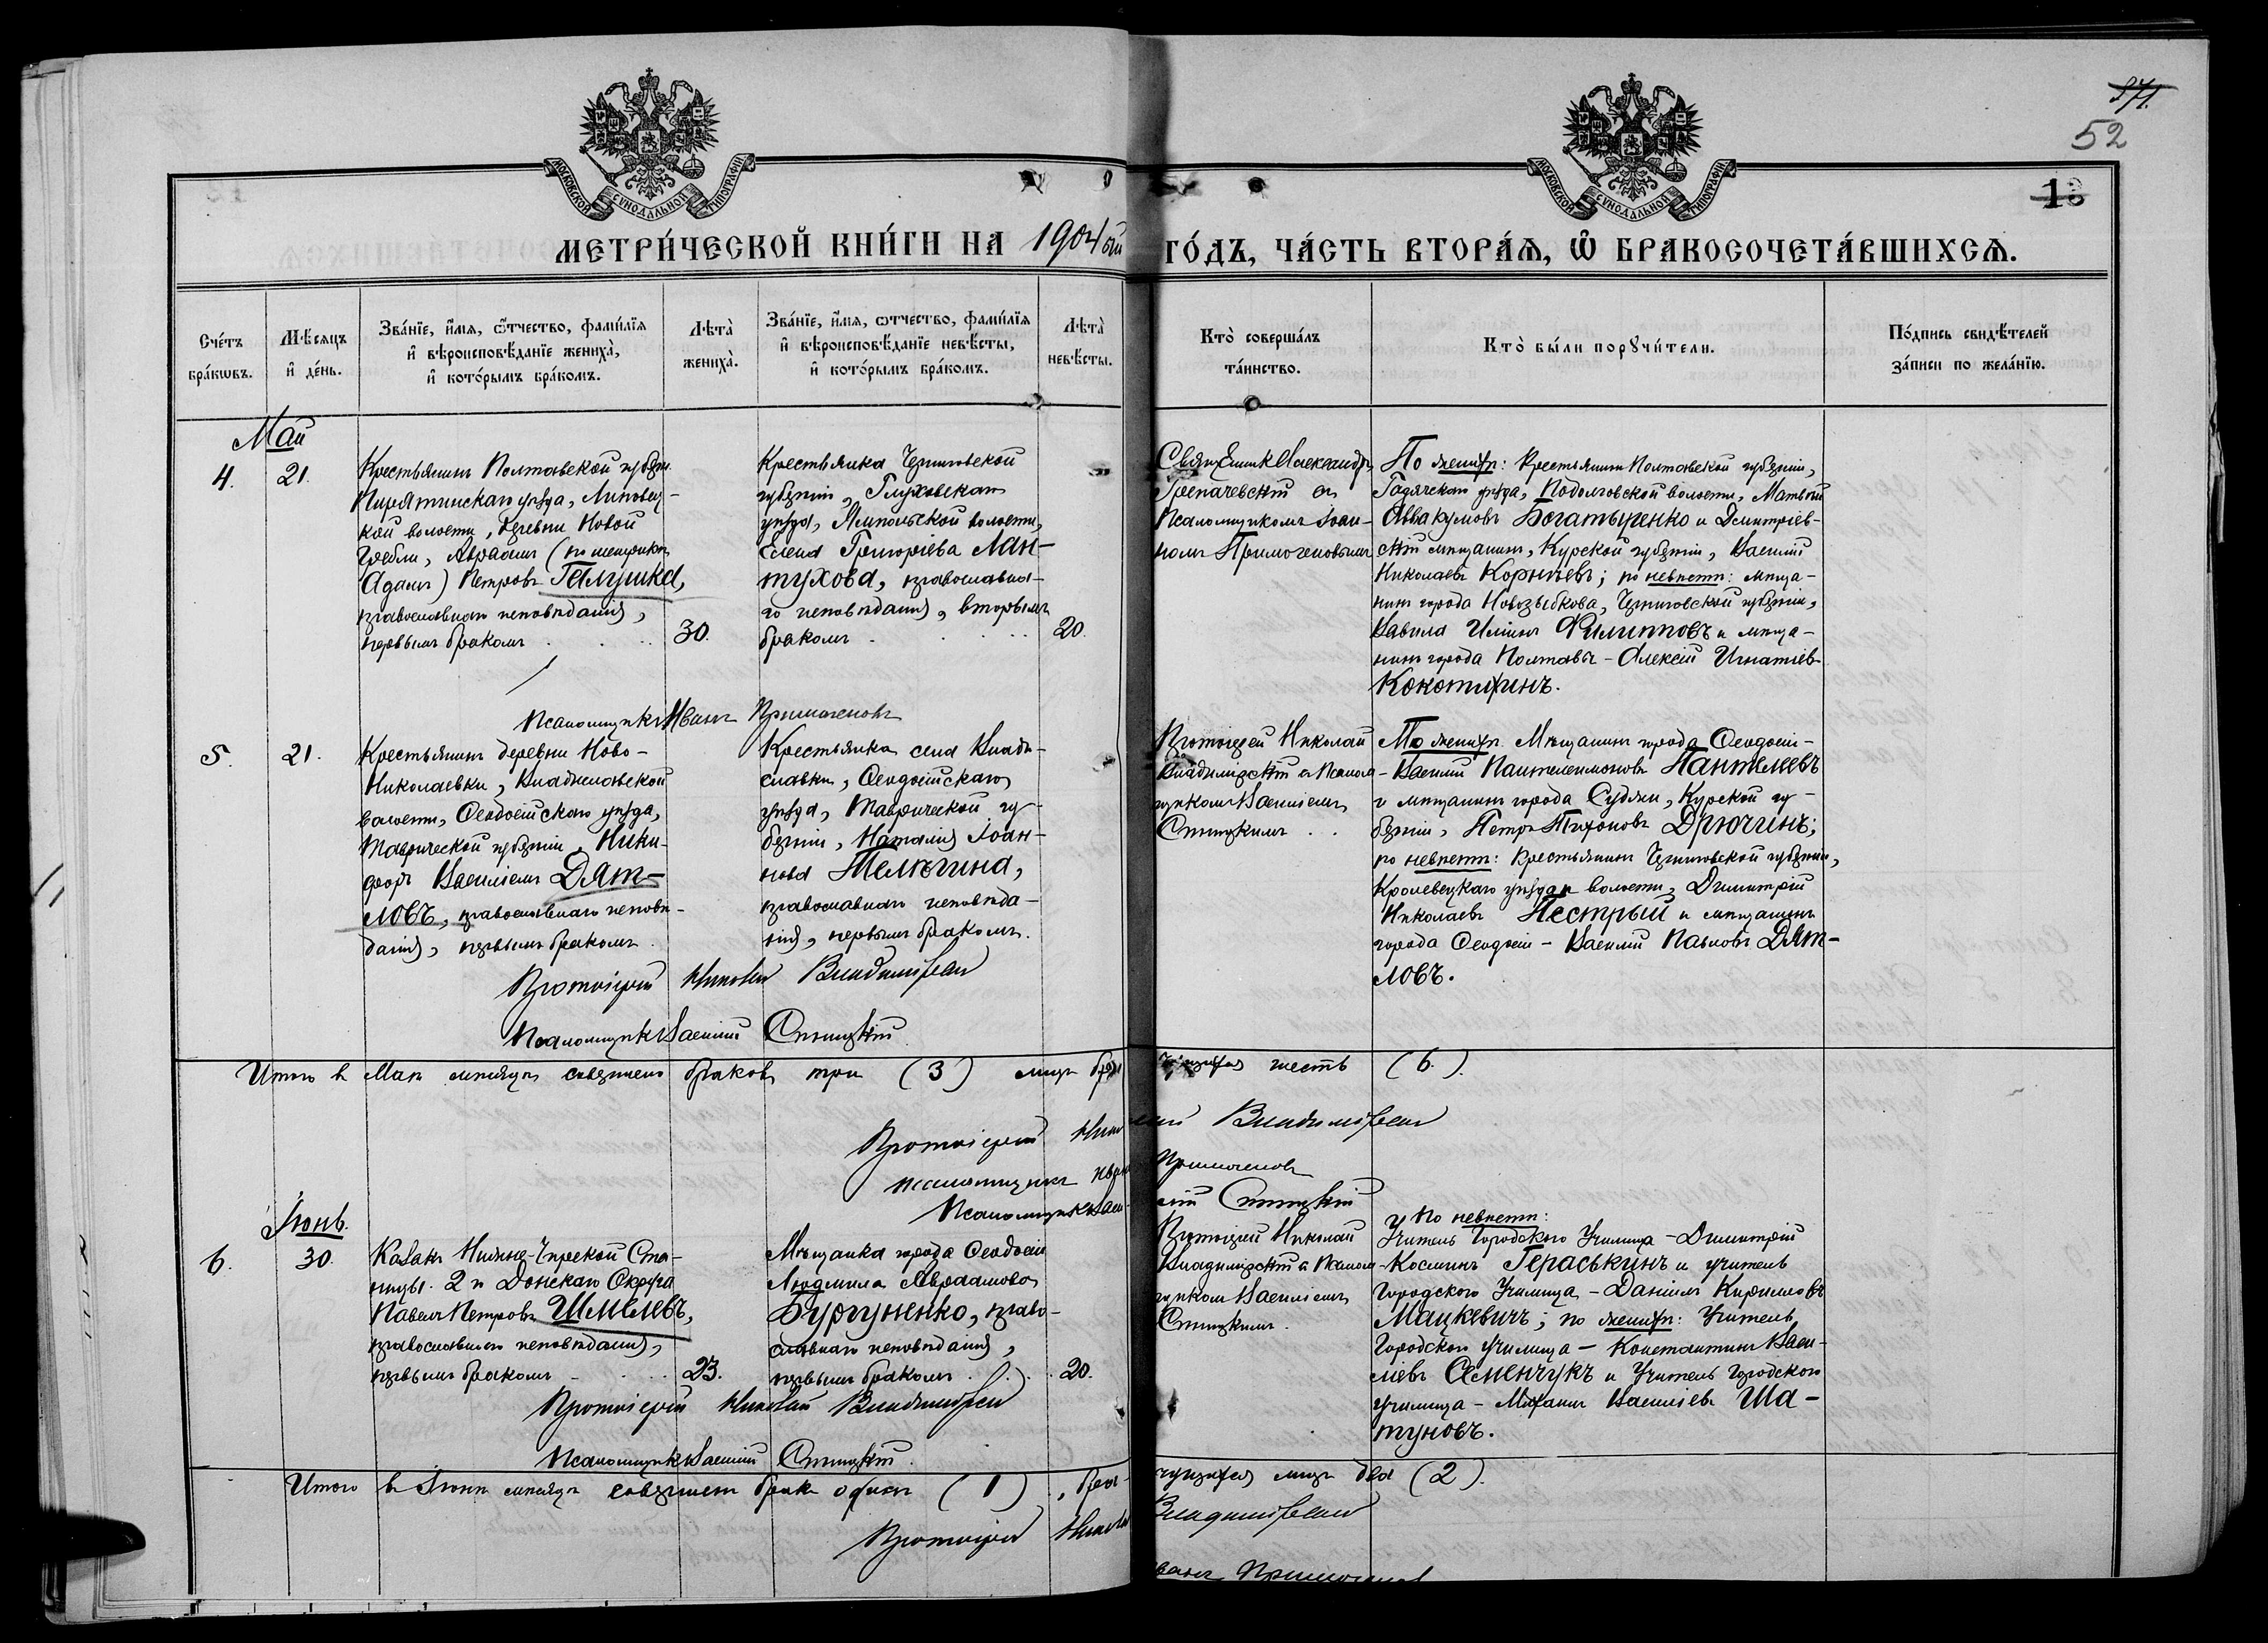 52
МОСКОВСКОЙ СУНОДАЛЬНОЙ ТИПОГРАФІИ
МОСКОВСКОЙ СУНОДАЛЬНОЙ ТИПОГРАФІИ
МЕТРИ́ЧЕСКОЙ КНИ́ГИ НА 1904ый ГО́ДЪ, ЧА́СТЬ ВТОРА́Я, Ѡ҆ БРАКОСОЧЕТА́ВШИХСЯ.
Сче́тъ бра́кѡвъ.
Мѣ́сяцъ и҆ де́нь.
Зва́нїе, и҆́мя, ѻ҆́тчество, фами́лїя
и҆ вѣроисповѣ́данїе жениха̀,
и҆ кото́рымъ бра́комъ.
Лѣта̀ жениха̀.
Зва́нїе, и҆́мя, ѻ҆́тчество, фами́лїя
и҆ вѣроисповѣ́данїе невѣ́сты,
и҆ кото́рымъ бра́комъ.
Лѣта̀ невѣ́сты.
Кто̀ соверша́лъ
та́инство.
Кто̀ бы́ли порꙋчи́тели.
По́дпись свидѣ́телей
за́писи по жела́нїю.
Май
4.
21.
Крестьянинъ Полтавской губерн.
Пирятинскаго уѣзда, Линовец-
кой волости, деревни Новой
Гребли, Авраамъ (по метрикѣ
Адамъ) Петровъ Галушка,
православнаго исповѣданія,
первымъ бракомъ
30.
Крестьянка Черниговской
губерніи, Глуховскаго
уѣзда, Ямпольской волости,
Елена Григоріева Лан-
тухова, православна-
го исповѣданія, вторымъ
бракомъ
20.
Священникъ Александръ
съ
Псаломщикомъ Іоан-
номъ Примогеновымъ
По женихѣ: Крестьянинъ Полтавской губерніи,
Гадячскаго уѣзда, волости, Матвѣй
Аввакумовъ Богатыренко и Дмитріев-
скій мѣщанинъ, Курской губерніи, Василій
Николаевъ Корнѣевъ; по невѣстѣ: мѣща-
нинъ города Новозыбкова, Черниговской губерніи,
Вавила Ильинъ Филипповъ и мѣща-
нинъ города Полтавы - Алексій Игнатіевъ
Кокотихинъ.
Псаломщикъ Иванъ Примогеновъ
5.
21.
Крестьянинъ деревни Ново-
Николаевки, Владиславской
волости, Ѳеодосійскаго уѣзда,
Таврической губерніи, Ники-
форъ Васильевъ Дят-
ловъ, православнаго исповѣ-
данія, первымъ бракомъ.
Крестьянка села Влади-
славки, Ѳеодосійскаго
уѣзда, Таврической гу-
берніи, Наталія Іоан-
нова Телегина,
православнаго исповѣда-
нія, первымъ бракомъ.
Протоіерей Николай
Владимірскій съ Псалом-
щикомъ Василіемъ
Спицкимъ
По женихѣ Мѣщанинъ города Ѳеодосіи
- Василій Пантелеимоновъ Пантелеевъ
и мѣщанинъ города Суджи, Курской гу-
берніи, Петръ Тихоновъ Дрючинъ;
по невѣстѣ: Крестьянинъ Черниговской губерніи,
Кролевецкаго уѣзда и волости, Димитрій
Николаевъ Пестрый и мѣщанинъ
города Ѳеодосіи - Василій Павловъ Дят-
ловъ.
Протоіерей Николай Владимірскій
Псаломщикъ Василій Спицкій
Итого въ Маѣ мѣсяцѣ совершено браковъ три (3) лицъ шесть (6).
Протоіерей Николай Владимірскій
Псаломщикъ Иванъ Примогеновъ
Псаломщикъ Василій Спицкій
Іюнь.
6.
30.
Казакъ Нижне-Чирской Ста-
ницы 2го Донского Округа
Павелъ Петровъ Шмелевъ,
православнаго исповѣданія,
первымъ бракомъ
23.
Мѣщанка города Ѳеодосіи
Людмила Авраамова
Бургуненко, право-
славнаго исповѣданія,
первымъ бракомъ
20.
Протоіерей Николай
Владимірскій съ Псалом-
щикомъ Василіемъ
Спицкимъ.
По невѣстѣ:
Учитель Городского Училища - Димитрій
Косминъ Гераськинъ и учитель
Городского Училища - Даніилъ Кирилловъ
Мацкевичъ; по женихѣ: Учитель
Городского училища - Константинъ Васи-
ліевъ Семенчукъ и Учитель Городского
училища - Михаилъ Василіевъ Ша-
туновъ.
Протоіерей Николай Владимірскій
Псаломщикъ Василій Спицкій.
Итого въ Іюнѣ мѣсяцѣ совершенъ бракъ одинъ (1), лицъ два (2).
Протоіерей Николай Владимірскій